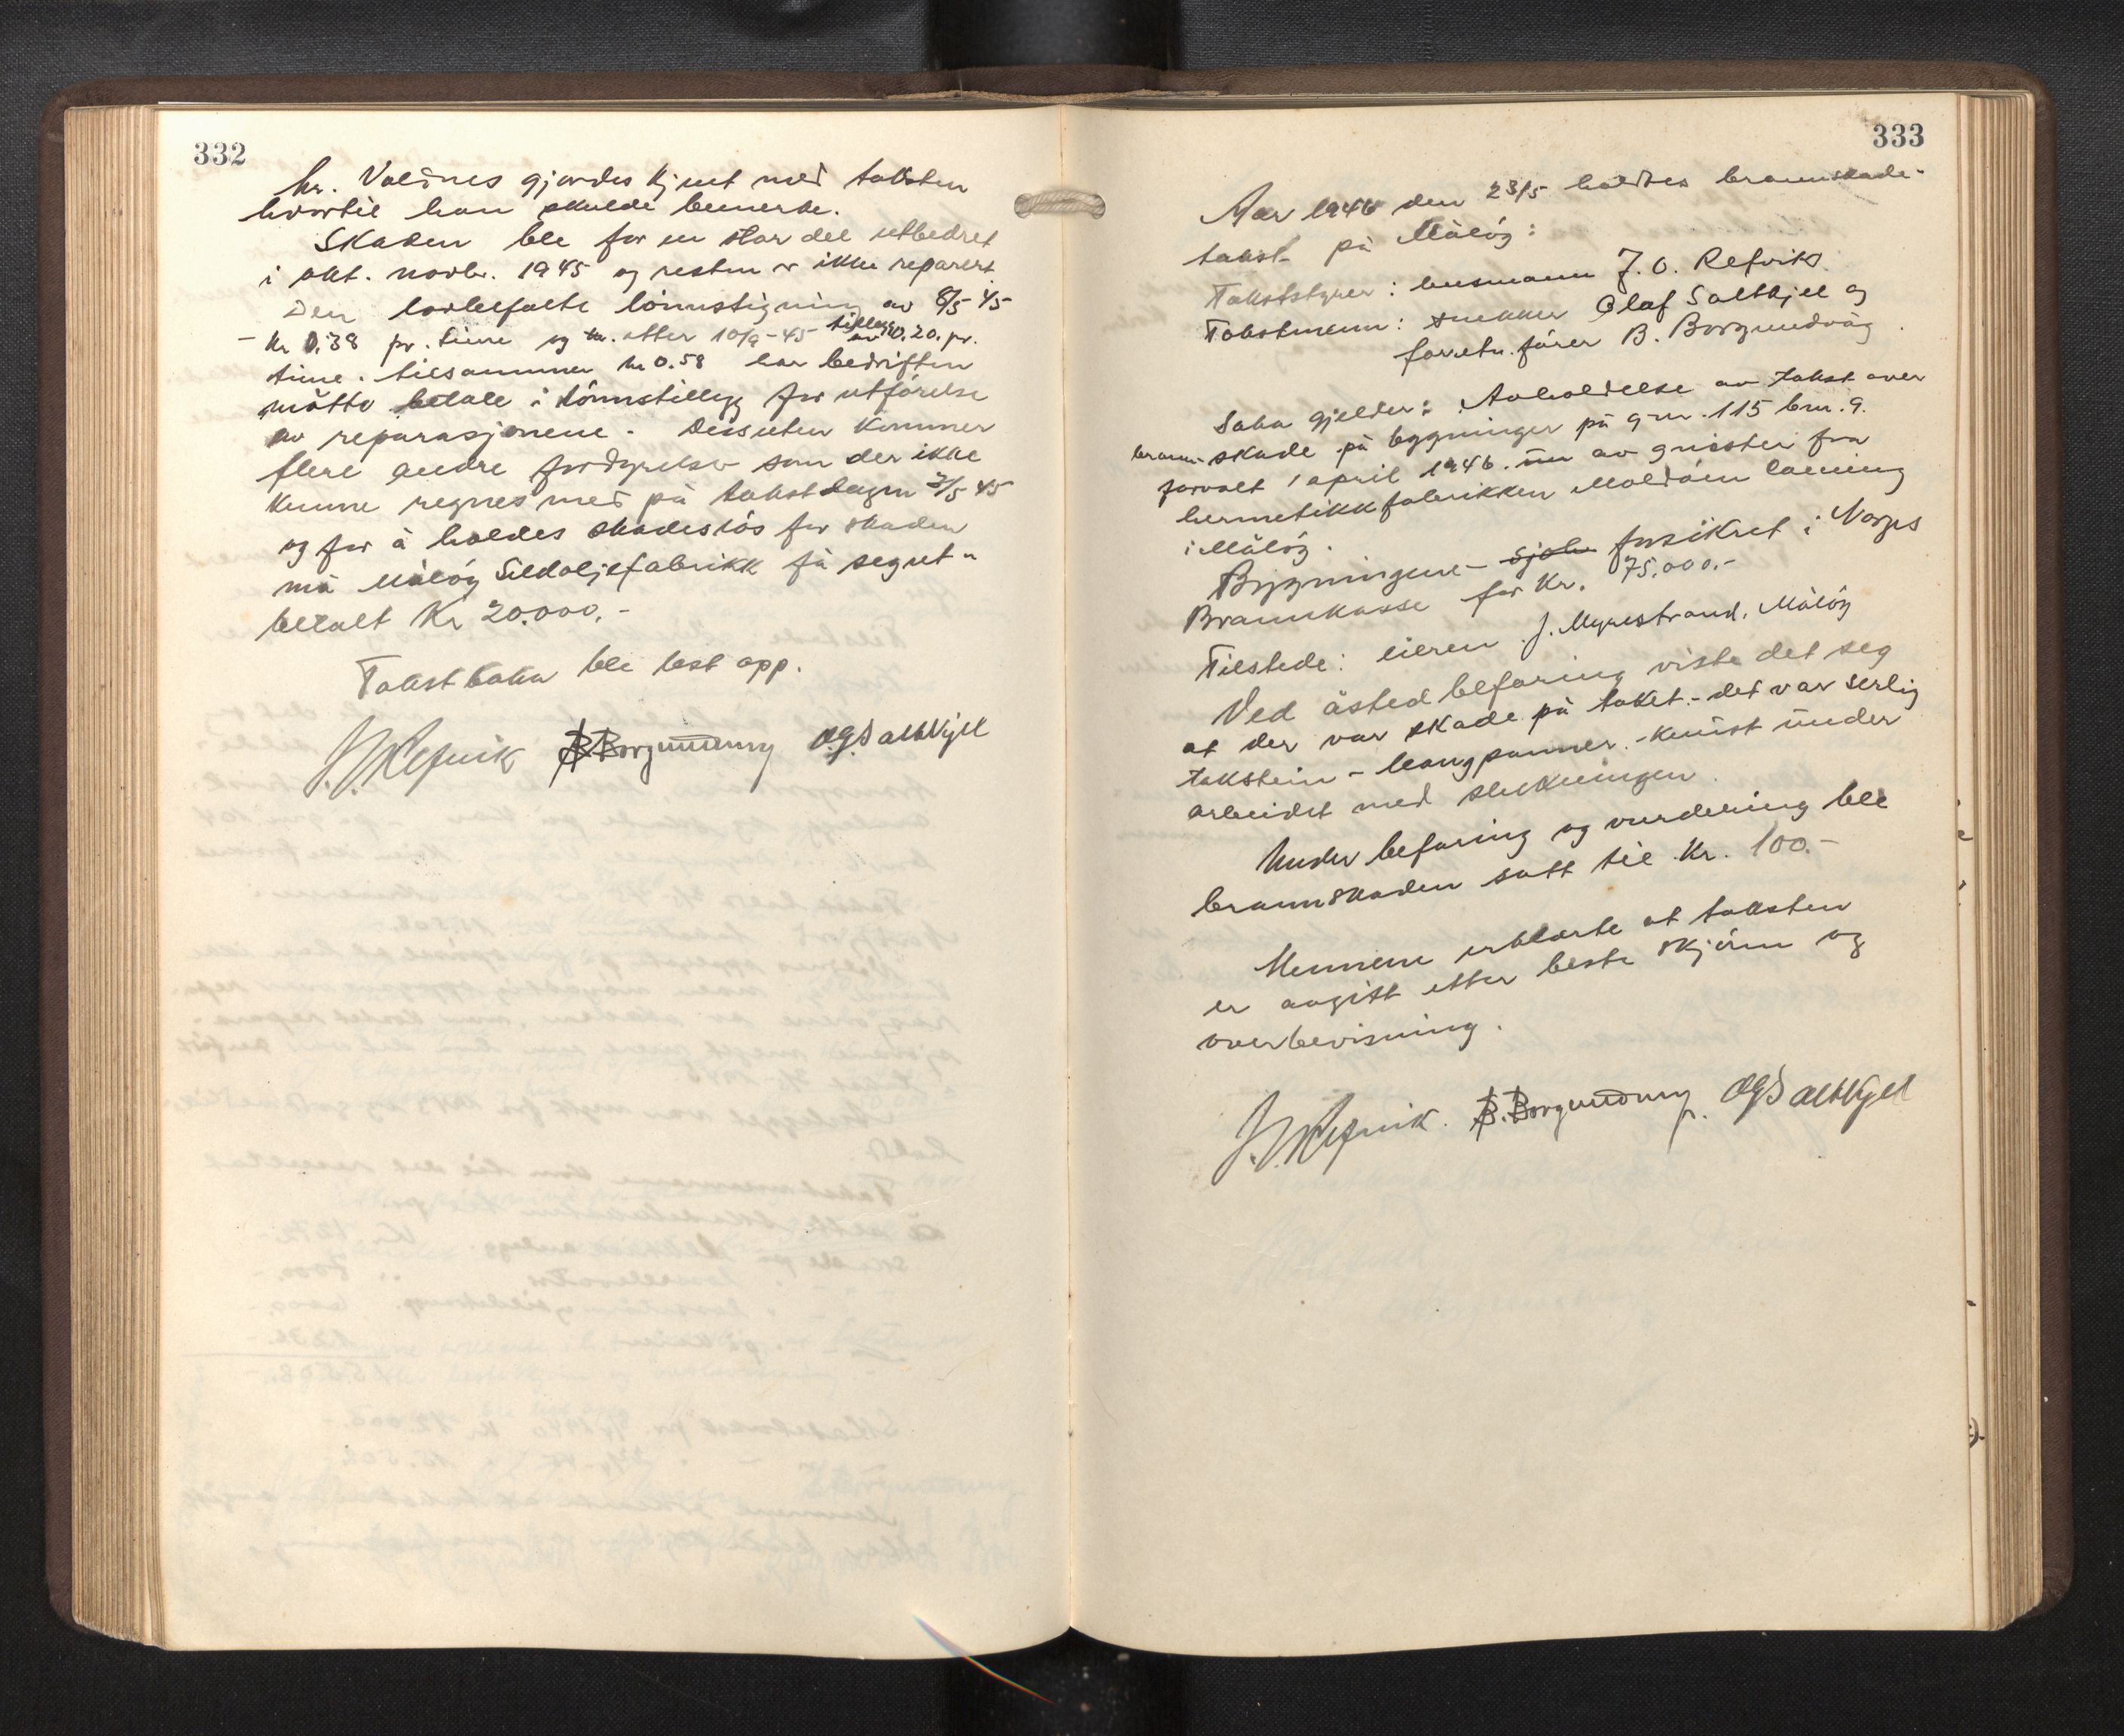 332
hr. Valdnes gjordes kjent med taksten
hvortil han skulde bemerke.
Skaden ble for en stor del utbedret
i okt. novbr. 1945 og resten er ikke reparert
Den lovbefalte lönnstigning av 8/5-45
- kr 0.38 pr. time og etter 10/9-45 tillegg av 0.20. pr.
time. tilsammen kr 0.58 har bedriften
måtte betale i lönnstillegg for utförelse
av reparasjonene. Dessuten kommer
flere andre fordyrelser som der ikke
kunne regnes med på takstdagen 3/5 45
og for å holdes skadeslös for skaden
må Målöy Sildoljefabrikk få seg ut-
betalt Kr 20.000.-
Takstboka ble lest opp.
J. Refvik B Borgundvåg O.G. Saltkjel
333
Aar 1946 den 23/5 holdtes brannskade-
takst på Målöy:
Takststyrer: lensmann J. O. Refvik
Takstmenn: snekker Olaf Saltkjel og
forretn. förer B. Borgundvåg.
Saka gjelder: Avholdelse av takst over
brann-skade på bygninger på gnr. 115 bnr. 9.
forvolt 1 april 1946 av gnister fra
hermetikkfabrikken Moldöen Canning
i Målöy.
Bygningene - forsikret i Norges
Brannkasse for Kr. 75.000.-
Tilstede: eieren J. Myrestrand, Målöy
Ved åsted befaring viste det seg
at der var skade på taket - det var serlig
takstein - knust under
arbeidet med slukkningen.
Under befaring og vurdering ble
brannskaden satt til Kr. 100.-
Mennene erklærte at taksten
er avgitt etter beste skjönn og
overbevisning.
J. Refvik. B. Borgundvåg. OG Saltkjel